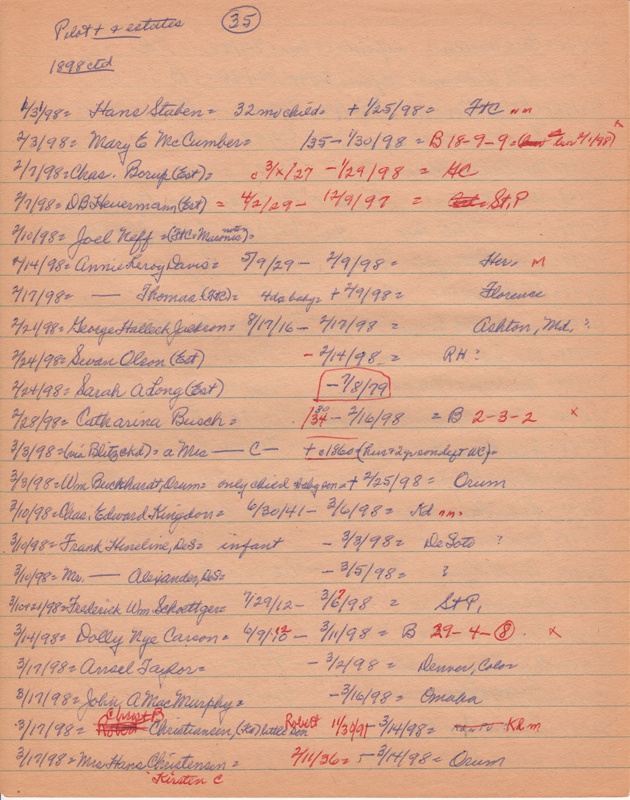 Pilot + & estates 35
1898 ctd
2/3/98 = Hans Staben = 32 mo child = + 1/25/98 = FtC
2/3/98 = Mary E McCumber = /35 - 1/30/98 = B 18-9-9 = 2/1/98) x
2/7/98 = Chas. Borup (Est) = c 3/x/27 - 1/29/98 = HC
2/7/98 = D.B. Heuermann (Est) = 4/2/29 - 12/9/97 = St. P
2/10/98 = Joel Neff = (FtC = Masonic =
2/14/98 = Annie Leroy Davis = 5/9/29 - 2/9/98 = Her = M
2/17/98 = — Thomas (FtC) = 4 da baby = + 2/9/98 = Florence
2/24/98 = George Hallock Jackson = 8/17/16 - 2/17/98 = Ashton, Md. ?
2/24/98 = Swan Olson (Est) - 2/14/98 = RH ?
2/24/98 = Sarah A Long (Est) - 7/8/79
2/28/98 = Catharina Busch = /34 30 - 2/16/98 = B 2-3-2 x
3/3/98 = (via Blitz ckd) = a Mrs — C — + c 1860 =
3/3/98 = Wm Buckhardt, Orum = only child = + 2/25/98 = Orum
3/10/98 = Chas. Edward Kingdon = 6/30/41 - 3/6/98 = Kd nm =
3/10/98 = Frank Hineline, DeS = infant - 3/3/98 = DeSoto ?
3/10/98 = Mr. — Alexander, DeS = - 3/5/98 = ?
3/10+21/98 = Frederick Wm Schoettger = 7/29/12 - 3/6/98 = 7 St P.
3/14/98 = Dolly Nye Carson = 6/9/10 12 - 3/11/98 = B 29-4-8 . x
3/17/98 = Ansel Taylor = - 3/2/98 = Denver, Color
3/17/98 = John A MacMurphy = - 3/16/98 = Omaha
3/17/98 = Christ B Christiansen, little son Robert 11/30/95 - 3/14/98 = Kd m
3/17/98 = Mrs Hans Christensen = 2/11/36 = - 3/14/98 = Orum
Kirstin C